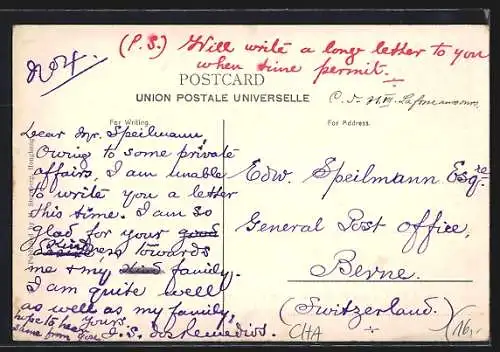 (P.S.) Will write a long letter to you
when time permit.
No 4.
POSTCARD
UNION POSTALE UNIVERSELLE
For Writing.
For Address.
Dear Mr. Speilmann,
Owing to some private
affairs, I am unable
to write you a letter
this time. I am so
glad for your good
kindness towards
me & my kind family.
I am quite well
as well as my family,
hope to hear
same from you
Yours
J. S. dos Remedios.
Edw. Speilmann Esqre
General Post Office,
Berne.
(Switzerland.)
CHA
16.-